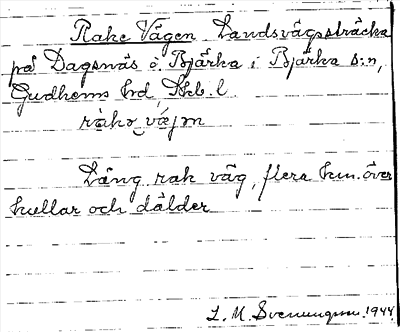 Rake Vägen Landsvägssträcka
på Dagsnäs o. Bjärka i Bjärka s:n,
Gudhems hd Skb. l
ràkə væ̀jm
Lång rak väg, flera km. över
kullar och dälder
L. M. Svenungson. 1944.